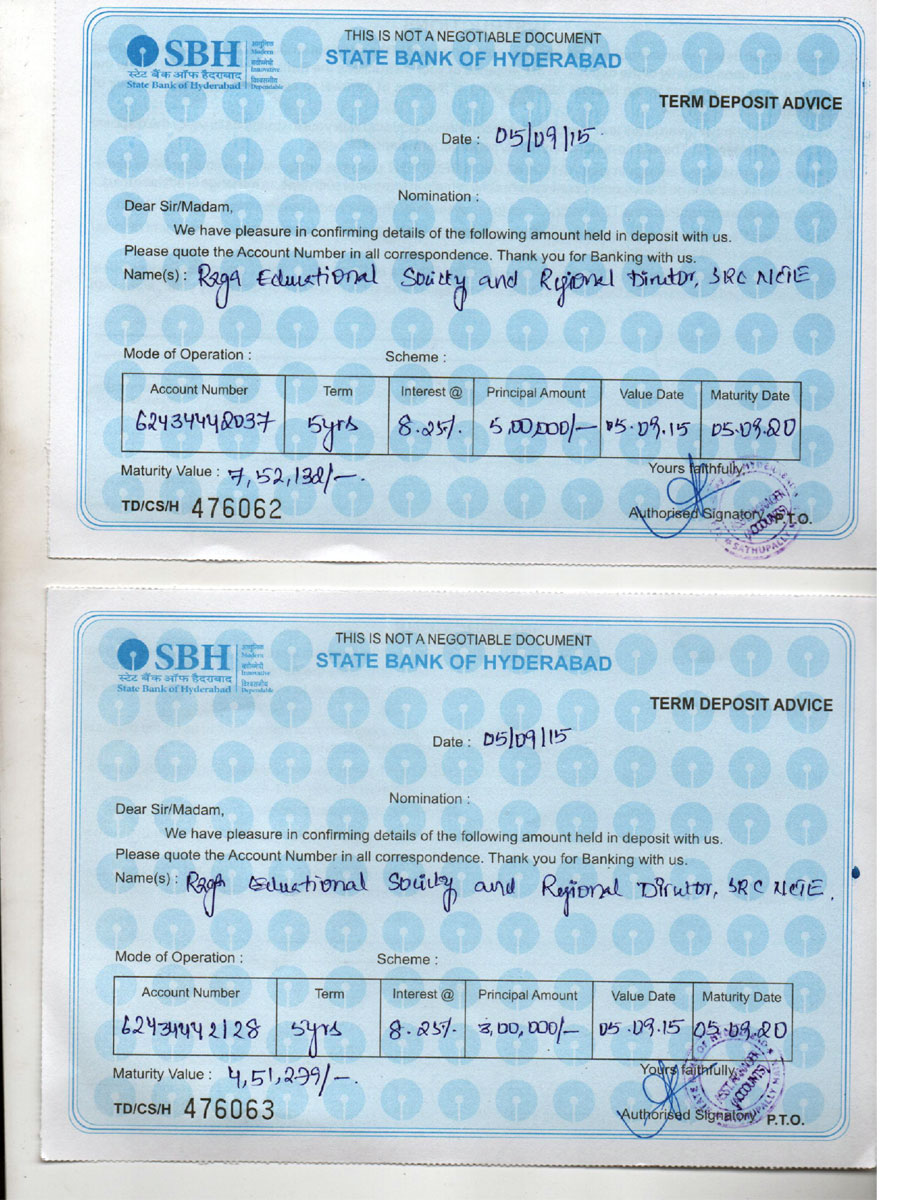 SBH
स्टेट बैंक ऑफ हैदराबाद
State Bank of Hyderabad
आधुनिक
Modern
नवोन्मेषी
Innovative
विश्वसनीय
Dependable
THIS IS NOT A NEGOTIABLE DOCUMENT
STATE BANK OF HYDERABAD
TERM DEPOSIT ADVICE
Date : 05/09/15
Nomination :
Dear Sir/Madam,
We have pleasure in confirming details of the following amount held in deposit with us.
Please quote the Account Number in all correspondence. Thank you for Banking with us.
Name(s) : Raga Educational Society and Regional Director, SRC NCTE
Mode of Operation : Scheme :
Account Number Term Interest @ Principal Amount Value Date Maturity Date
62434442037 5yrs 8.25%. 5,00,000/- 05.09.15 05.09.20
Maturity Value : 7,52,132/-.
Yours faithfully,
TD/CS/H 476062
Authorised Signatory P.T.O.
SBH
स्टेट बैंक ऑफ हैदराबाद
State Bank of Hyderabad
आधुनिक
Modern
नवोन्मेषी
Innovative
विश्वसनीय
Dependable
THIS IS NOT A NEGOTIABLE DOCUMENT
STATE BANK OF HYDERABAD
TERM DEPOSIT ADVICE
Date : 05/09/15
Nomination :
Dear Sir/Madam,
We have pleasure in confirming details of the following amount held in deposit with us.
Please quote the Account Number in all correspondence. Thank you for Banking with us.
Name(s) : Raga Educational Society and Regional Director, SRC NCTE.
Mode of Operation : Scheme :
Account Number Term Interest @ Principal Amount Value Date Maturity Date
62434442128 5yrs 8.25%. 3,00,000/- 05.09.15 05.09.20
Maturity Value : 4,51,279/-.
Yours faithfully,
TD/CS/H 476063
Authorised Signatory P.T.O.